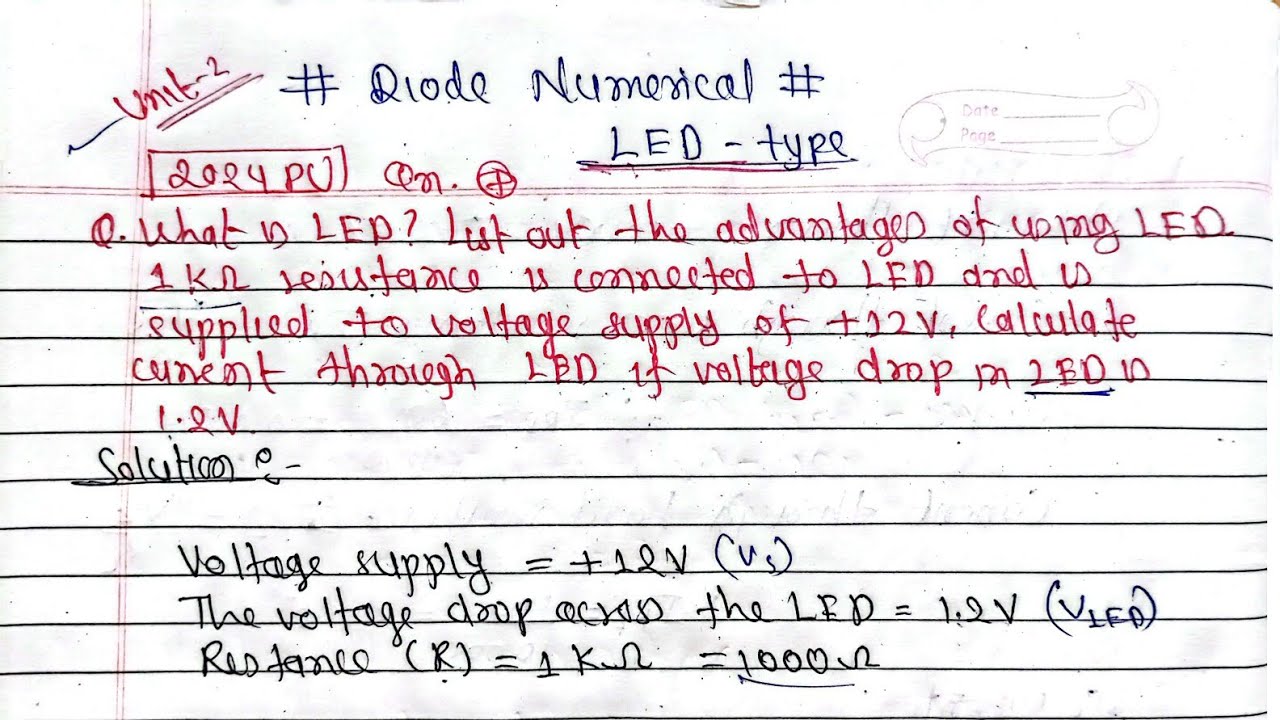 Unit-2
# Diode Numerical #
LED - type
Date
Page
2024 PU Qn.
Q. What is LED? List out the advantages of using LED
1 KΩ resistance is connected to LED and is
supplied to voltage supply of +12V, Calculate
current through LED if voltage drop in LED is
1.2V.
Solution :-
Voltage supply = +12V (Vs)
The voltage drop across the LED = 1.2V (VLED)
Restance (R) = 1 KΩ = 1000Ω